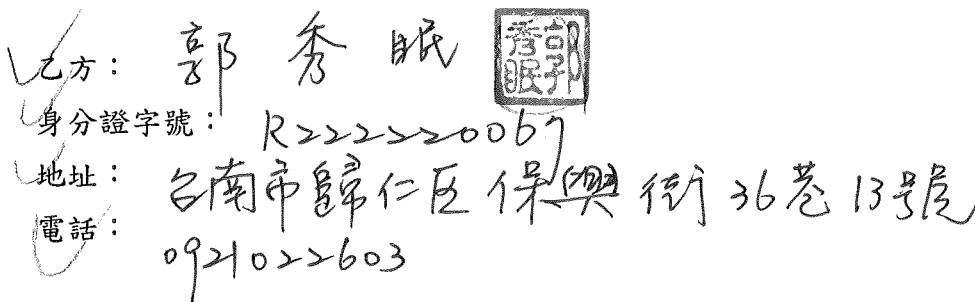 乙方：郭秀眠 郭秀眠
身分證字號：R222220067
地址：台南市歸仁区保興街36巷13号
電話：0921022603